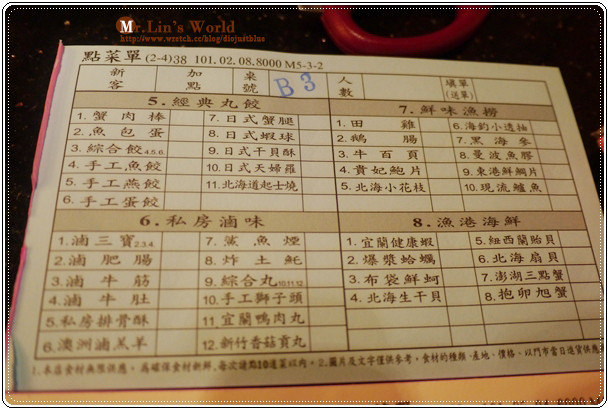 Mr.Lin's World
http://www.wretch.cc/blog/diojustblue
點菜單 (2-4)38 101.02.08.8000 M5-3-2
新客 加點 桌號 B3 人數 填單(送單)
5.經典丸餃
1.蟹肉棒 7.日式蟹腿
2.魚包蛋 8.日式蝦球
3.綜合餃4.5.6. 9.日式干貝酥
4.手工魚餃 10.日式天婦羅
5.手工燕餃 11.北海道起士燒
6.手工蛋餃
7.鮮味漁撈
1.田雞 6.海釣小透抽
2.鵝腸 7.黑海參
3.牛百頁 8.曼波魚膠
4.貴妃鮑片 9.東港鮮鯛片
5.北海小花枝 10.現流鱸魚
6.私房滷味
1.滷三寶2.3.4. 7.鯊魚煙
2.滷肥腸 8.炸土魠
3.滷牛筋 9.綜合丸10.11.12.
4.滷牛肚 10.手工獅子頭
5.私房排骨酥 11.宜蘭鴨肉丸
6.澳洲滷羔羊 12.新竹香菇貢丸
8.漁港海鮮
1.宜蘭健康蝦 5.紐西蘭貽貝
2.爆漿蛤蠣 6.北海扇貝
3.布袋鮮蚵 7.澎湖三點蟹
4.北海生干貝 8.抱卵旭蟹
1.本店食材無限供應，為確保食材新鮮，每次請點10道菜以內。2.圖片及文字僅供參考，食材的種類、產地、價格、以門市當日進貨供應